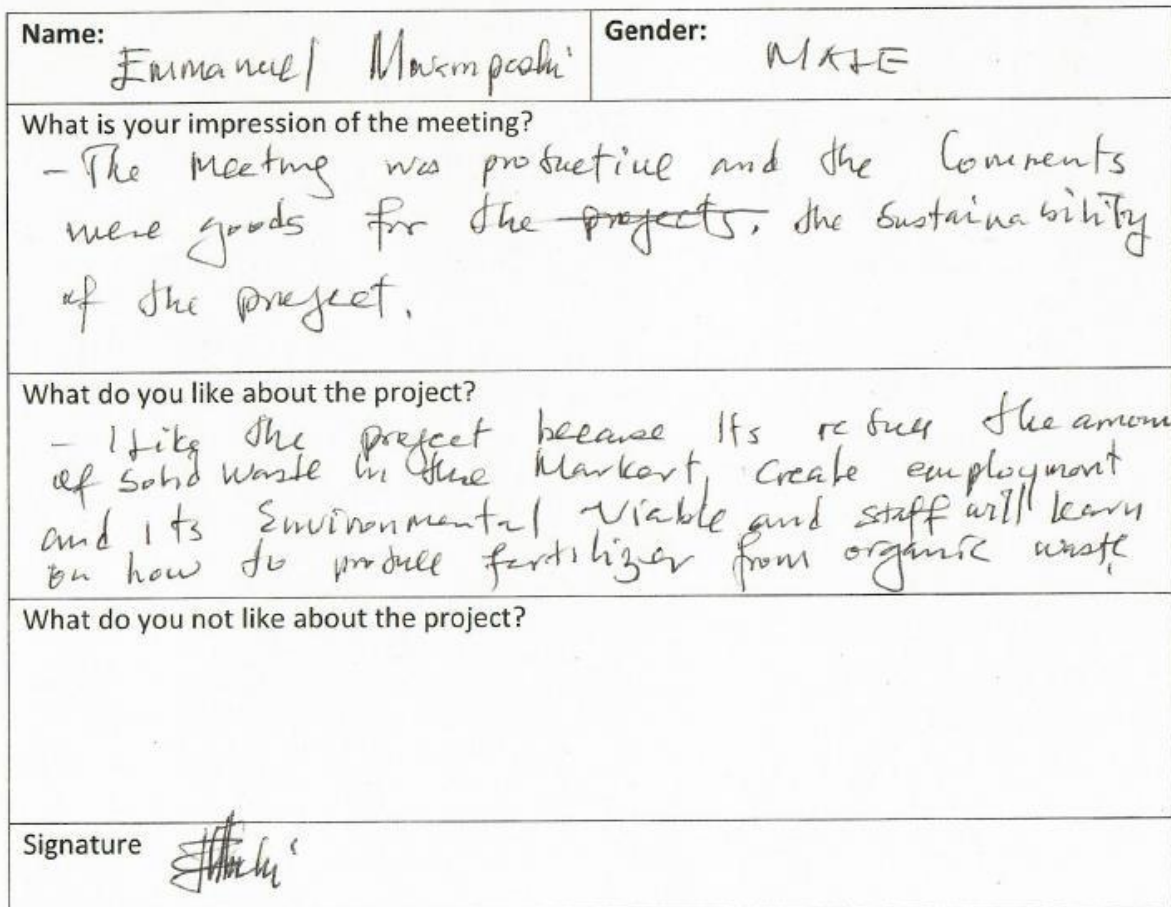 Name: Emmanuel Mwampashi
Gender: MALE
What is your impression of the meeting?
- The Meeting was productive and the Comments
were goods for the projects. the Sustainability
of the project.
What do you like about the project?
- I like the project because Its reduce the amou
of solid waste in the Markert, Create employment
and Its Environmental Viable and staff will learn
on how to produce fertilizer from organic waste.
What do you not like about the project?
Signature